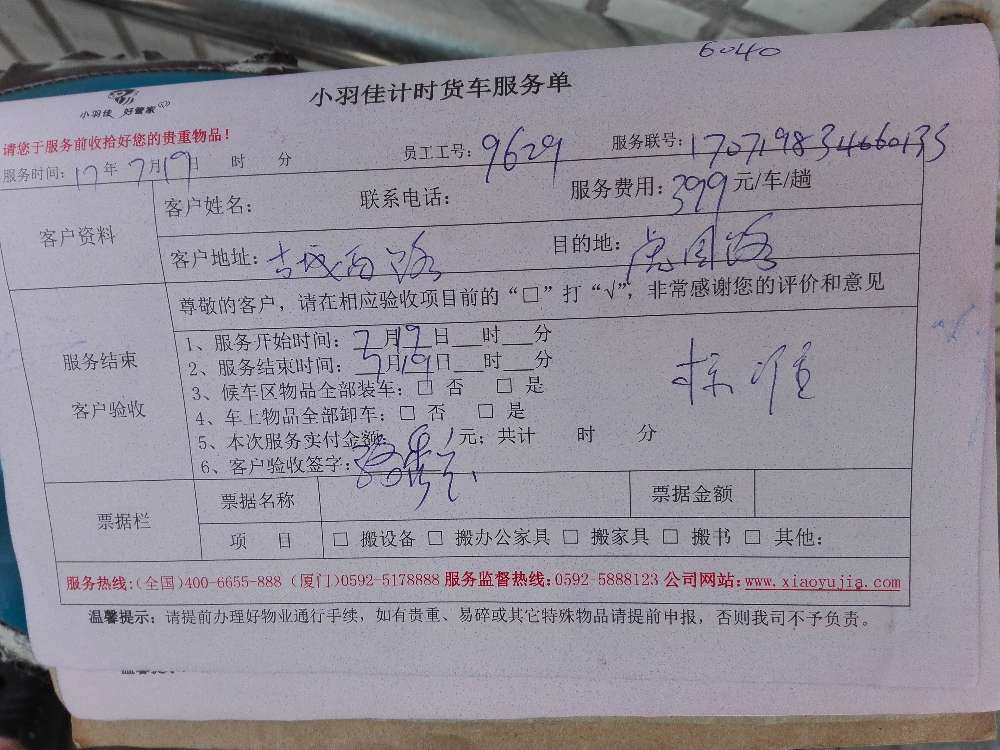 6040
小羽佳 好管家
小羽佳计时货车服务单
请您于服务前收拾好您的贵重物品!
服务时间:17年7月19日 时 分 员工工号:9629 服务联号:170719834660135
客户资料
客户姓名: 联系电话: 服务费用:399元/车/趟
客户地址:古城西路 目的地:虎园路
服务结束
客户验收
尊敬的客户,请在相应验收项目前的“□”打“√”,非常感谢您的评价和意见
1、服务开始时间:7月19日___时___分
2、服务结束时间:7月19日___时___分
3、候车区物品全部装车:□ 否 □ 是
4、车上物品全部卸车:□ 否 □ 是
5、本次服务实付金额: 元;共计 时 分
6、客户验收签字:
票据栏
票据名称 票据金额
项 目 □ 搬设备 □ 搬办公家具 □ 搬家具 □ 搬书 □ 其他:
服务热线:(全国)400-6655-888 (厦门)0592-5178888 服务监督热线:0592-5888123 公司网站:www.xiaoyujia.com
温馨提示:请提前办理好物业通行手续,如有贵重、易碎或其它特殊物品请提前申报,否则我司不予负责。